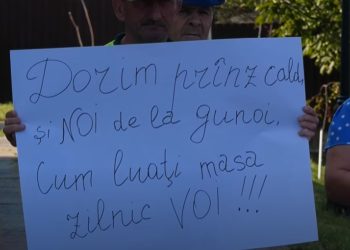 Dorim prînz cald,
și NOI de la gunoi,
Cum luați masa
zilnic VOI !!!